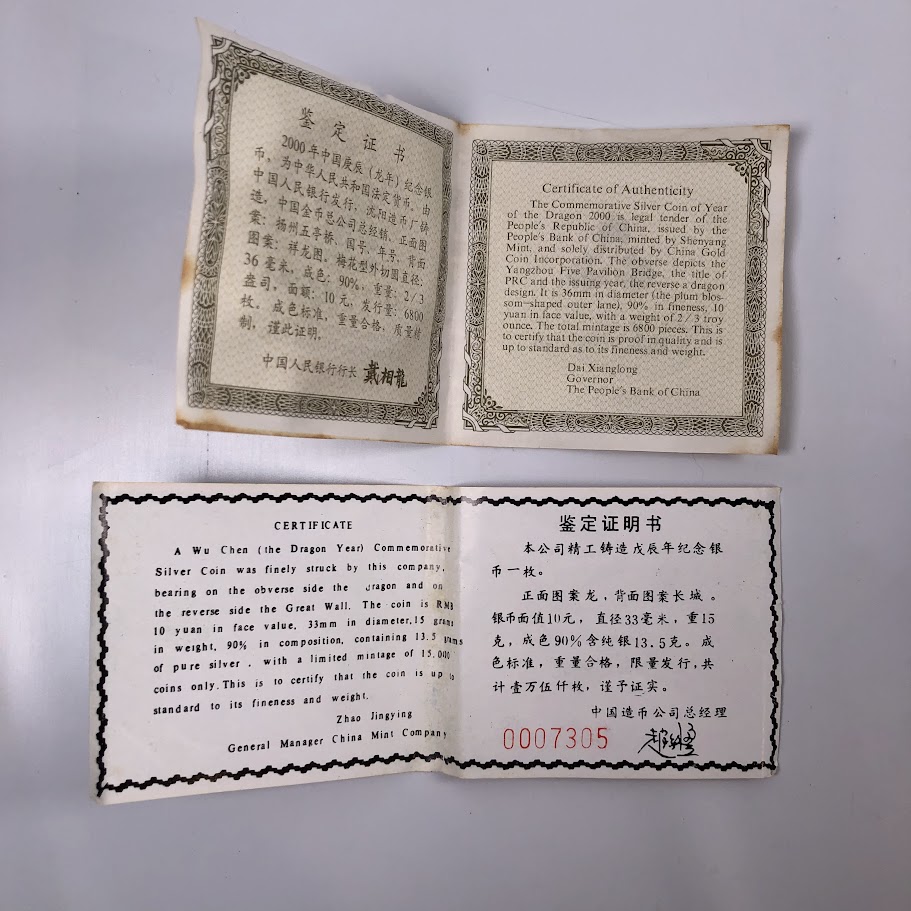 鉴定证书
2000年中国庚辰（龙年）纪念银
币，为中华人民共和国法定货币，由
中国人民银行发行，沈阳造币厂铸
造，中国金币总公司总经销。正面图
案：扬州五亭桥、国号、年号，背面
图案：祥龙图，梅花型外切圆直径：
36毫米，成色：90%，重量：2/3
盎司，面额：10元，发行量：6800
枚。成色标准，重量合格，质量精
制，谨此证明。
中国人民银行行长 戴相龙
Certificate of Authenticity
The Commemorative Silver Coin of Year
of the Dragon 2000 is legal tender of the
People's Republic of China, issued by the
People's Bank of China, minted by Shenyang
Mint, and solely distributed by China Gold
Coin Incorporation. The obverse depicts the
Yangzhou Five Pavilion Bridge, the title of
PRC and the issuing year, the reverse a dragon
design. It is 36mm in diameter (the plum blos-
som-shaped outer lane), 90% in fineness, 10
yuan in face value, with a weight of 2/3 troy
ounce. The total mintage is 6800 pieces. This is
to certify that the coin is proof in quality and is
up to standard as to its fineness and weight.
Dai Xianglong
Governor
The People's Bank of China
CERTIFICATE
A Wu Chen (the Dragon Year) Commemorative
Silver Coin was finely struck by this company,
bearing on the obverse side the dragon and on
the reverse side the Great Wall. The coin is RMB
10 yuan in face value, 33mm in diameter,15 grams
in weight, 90% in composition, containing 13.5 grams
of pure silver . with a limited mintage of 15.000
coins only.This is to certify that the coin is up to
standard to its fineness and weight.
Zhao Jingying
General Manager China Mint Company
鉴定证明书
本公司精工铸造戊辰年纪念银
币一枚。
正面图案龙，背面图案长城。
银币面值10元，直径33毫米，重15
克，成色90%含纯银13.5克。成
色标准，重量合格，限量发行，共
计壹万伍仟枚，谨予证实。
中国造币公司总经理
0007305